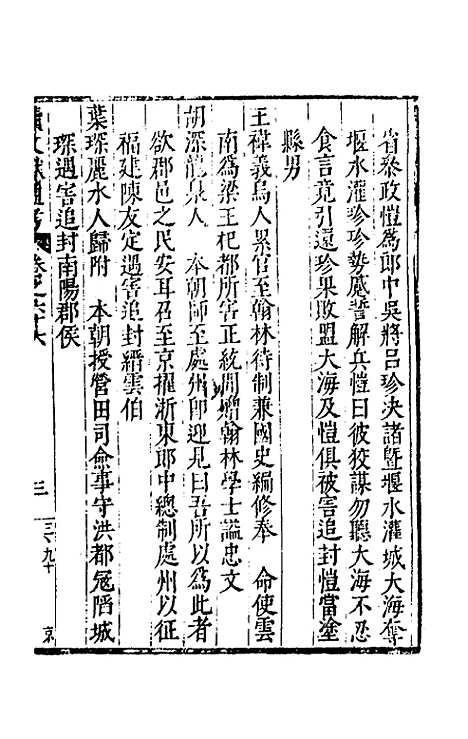 省參政愷爲郎中吳將呂珍决諸暨堰水灌城大海奪
堰水灌珍珍勢蹙誓解兵愷曰彼狡謀勿聽大海不忍
食言竟引還珍果敗盟大海及愷俱被害追封愷當塗
縣男
王禕義烏人累官至翰林待制兼國史編修奉　命使雲
南爲梁王杞都所害正統間贈翰林學士謚忠文
胡深龍泉人　本朝師至處州卽迎見曰吾所以爲此者
欲郡邑之民安耳召至京擢浙東郎中總制處州以征
福建陳友定遇害追封縉雲伯
葉琛麗水人歸附　本朝授營田司僉事守洪都冦陷城
琛遇害追封南陽郡侯
續文獻通考
三
三九十
京